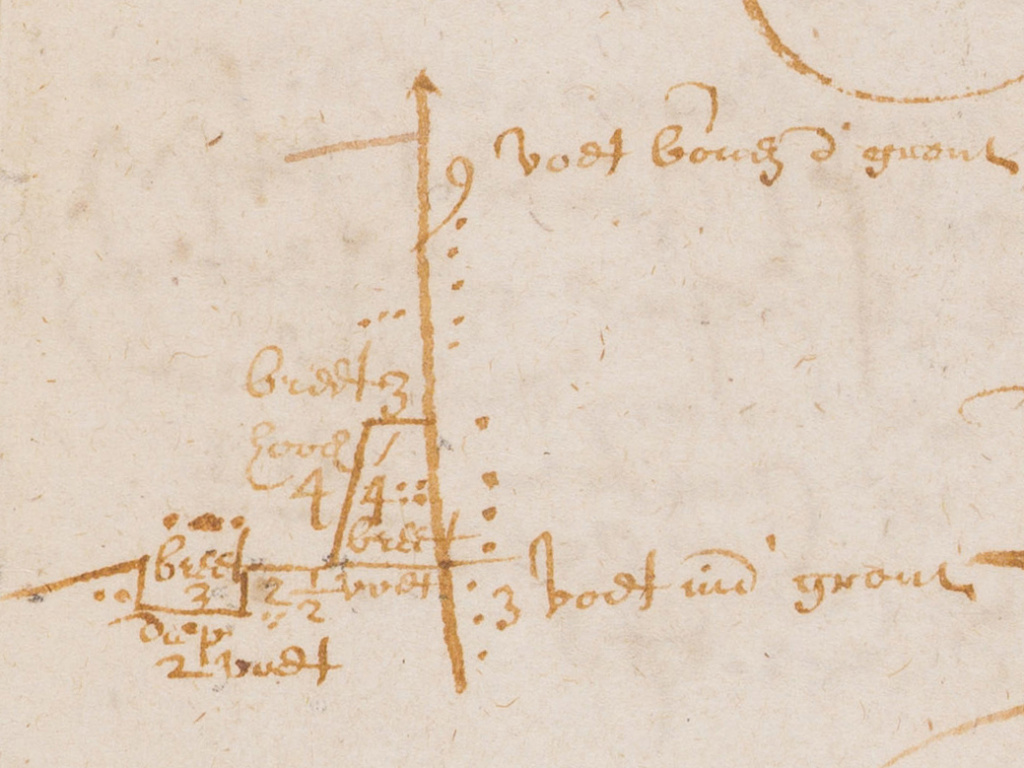 9 voet bouen d' gront
breet 3
hooch
4 4
breet
breet
3
2 1/2 voet
3 voet in d' gront
diep
2 voet